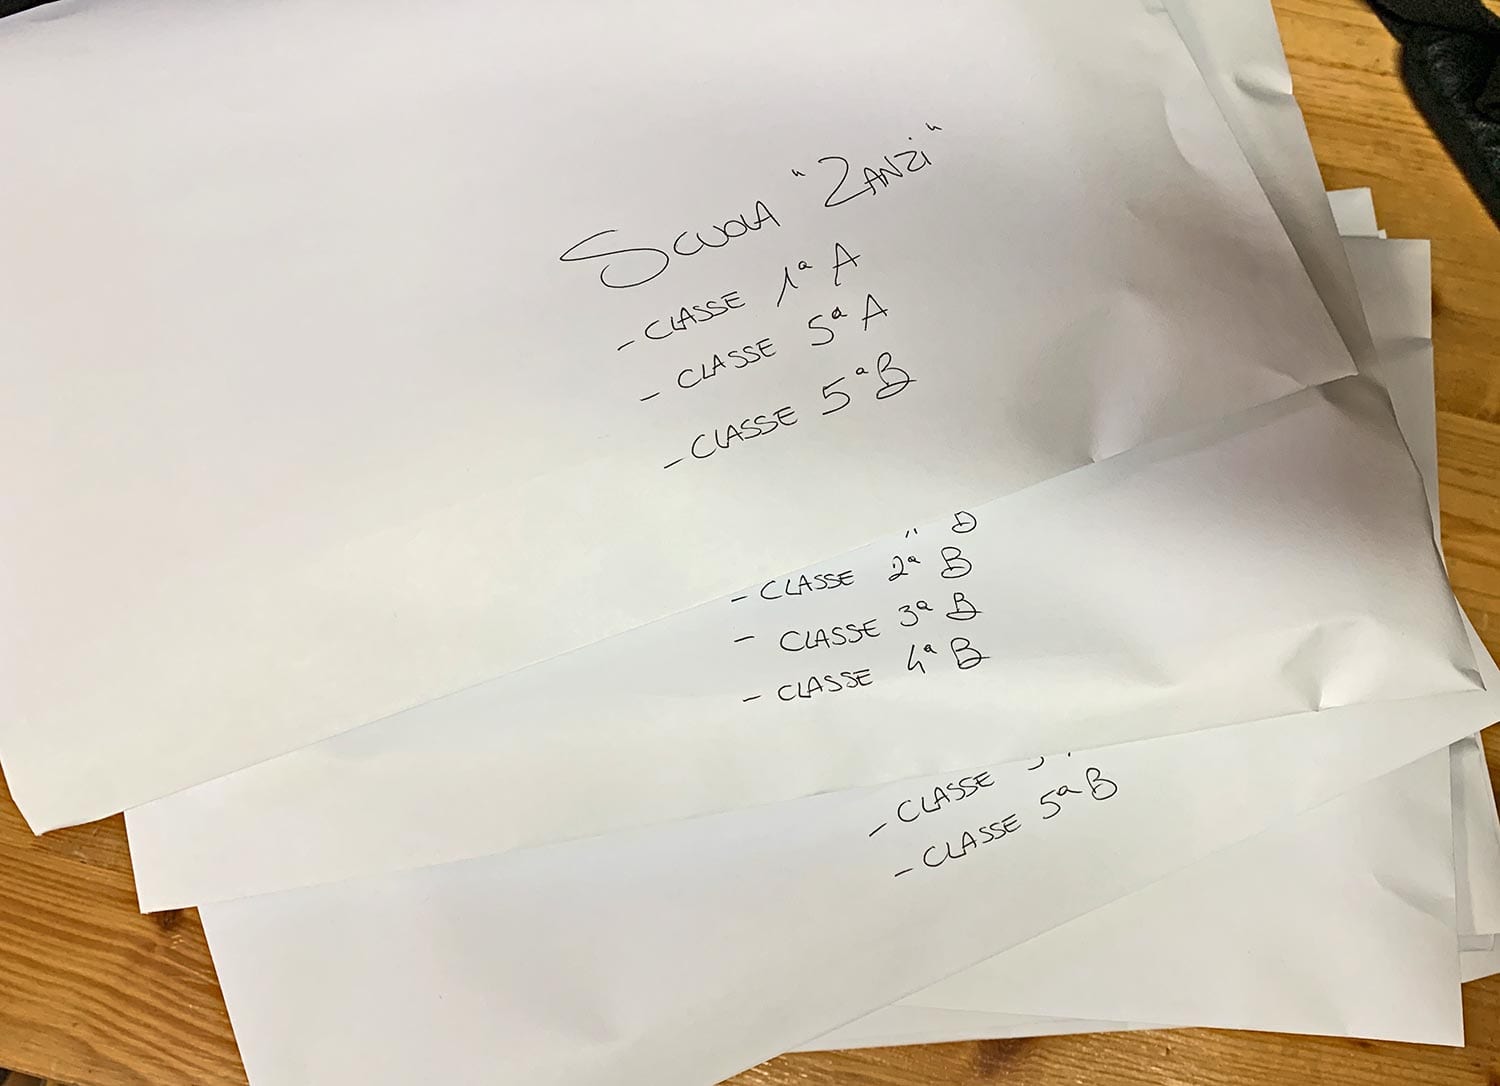 Scuola "Zanzi"
- CLASSE 1ª A
- CLASSE 5ª A
- CLASSE 5ª B
- CLASSE 2ª B
- CLASSE 3ª B
- CLASSE 4ª B
- CLASSE
- CLASSE 5ª B